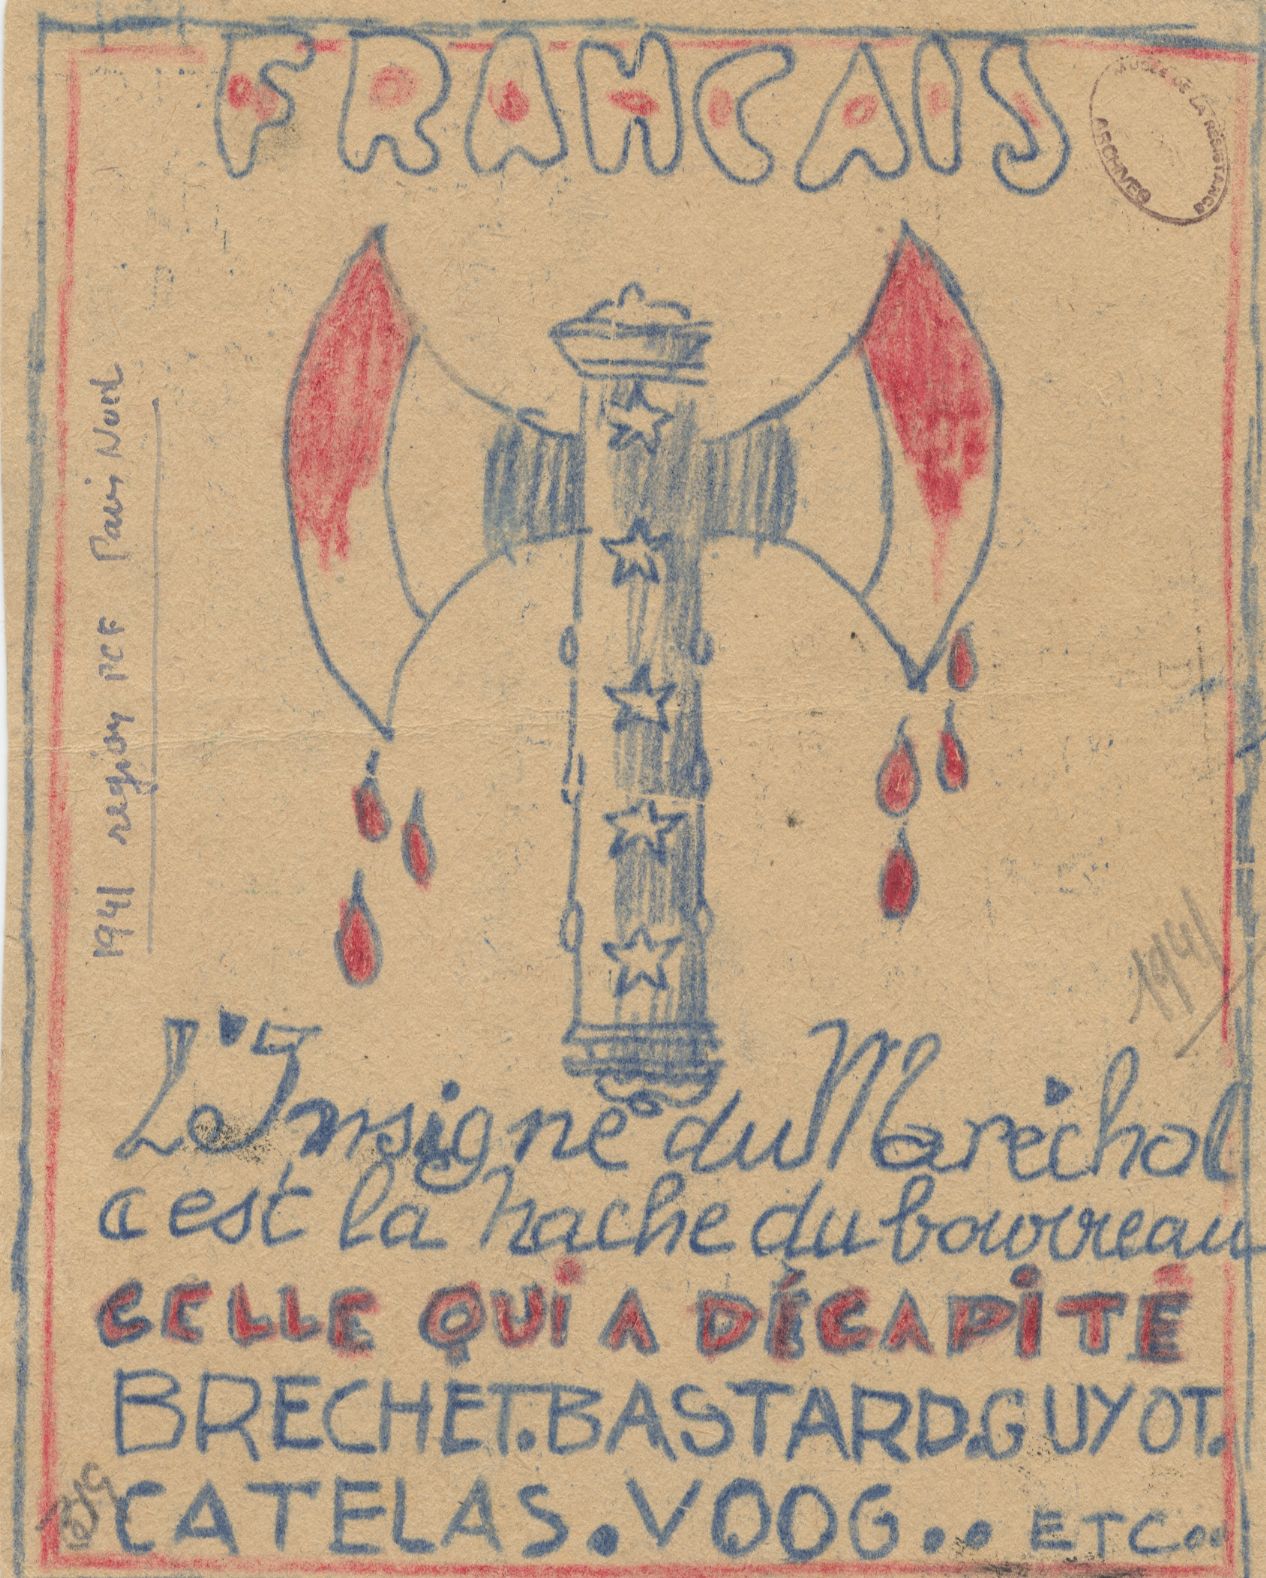 FRANCAIS
MUSÉE DE LA RÉSISTANCE
ARCHIVES
1941 region PCF Paris Nord
1941
L'Insigne du Maréchal
c'est la hache du bourreau
CELLE QUi A DÉCAPiTÉ
BRECHET.BASTARD.GUYOT.
CATELAS.VOOG.. ETC..